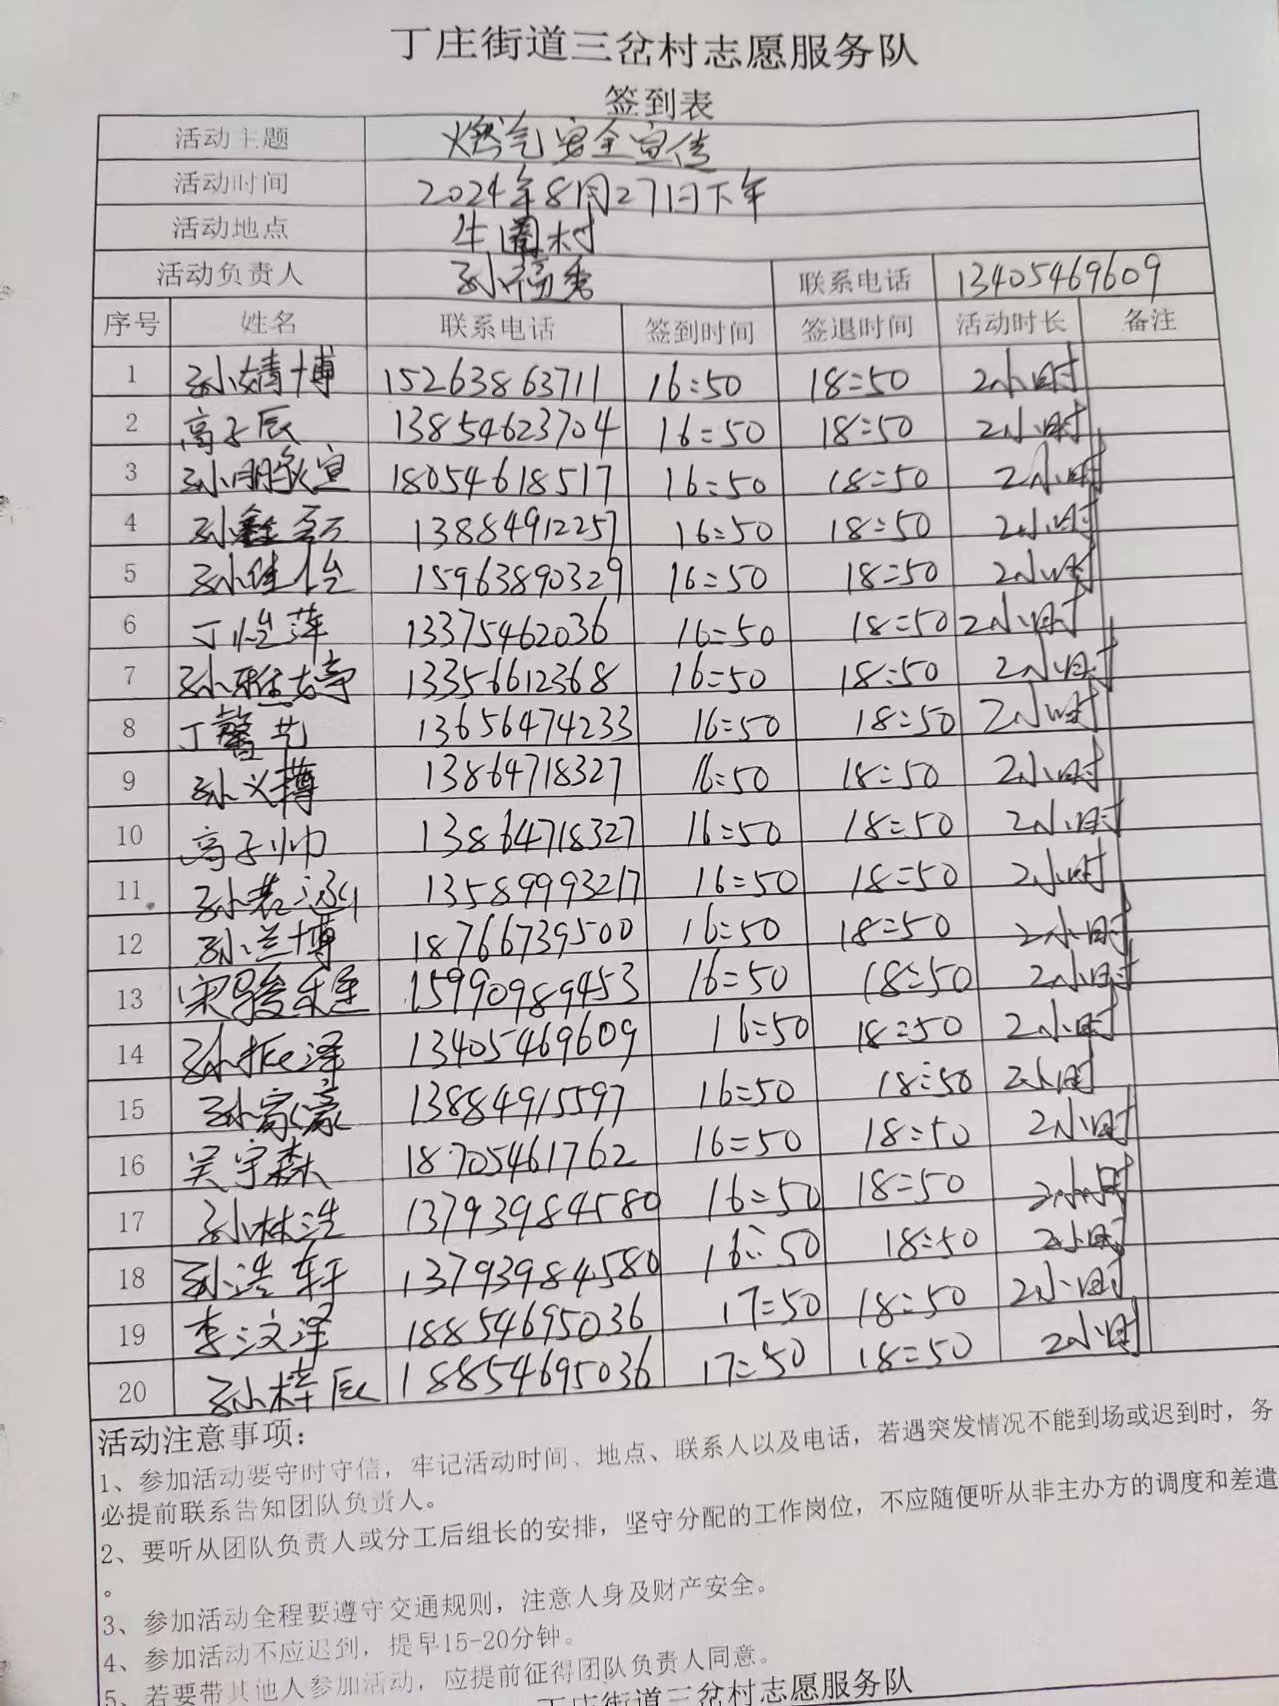 丁庄街道三岔村志愿服务队
签到表
活动主题 燃气安全宣传
活动时间 2024年8月27日下午
活动地点 牛圈村
活动负责人 孙福秀 联系电话 13405469609
序号 姓名 联系电话 签到时间 签退时间 活动时长 备注
1 孙婧博 15263863711 16:50 18:50 2小时
2 高子辰 13854623704 16:50 18:50 2小时
3 孙明钦宣 18054618517 16:50 18:50 2小时
4 孙鑫 13884912257 16:50 18:50 2小时
5 孙佳怡 15963890329 16:50 18:50 2小时
6 丁怡萍 13375462036 16:50 18:50 2小时
7 孙雅婷 13356612368 16:50 18:50 2小时
8 丁馨艺 13656474233 16:50 18:50 2小时
9 孙义 13864718327 16:50 18:50 2小时
10 高子帅 13864718327 16:50 18:50 2小时
11 孙若 13589993217 16:50 18:50 2小时
12 孙兰博 18766739500 16:50 18:50 2小时
13 宋骏 15990989453 16:50 18:50 2小时
14 孙振泽 13405469609 16:50 18:50 2小时
15 孙家豪 13884915597 16:50 18:50 2小时
16 吴宇森 18705461762 16:50 18:50 2小时
17 孙林浩 13793984580 16:50 18:50 2小时
18 孙浩轩 13793984580 16:50 18:50 2小时
19 李汶泽 18854695036 17:50 18:50 2小时
20 孙梓辰 18854695036 17:50 18:50 2小时
活动注意事项：
1、参加活动要守时守信，牢记活动时间、地点、联系人以及电话，若遇突发情况不能到场或迟到时，务
必提前联系告知团队负责人。
2、要听从团队负责人或分工后组长的安排，坚守分配的工作岗位，不应随便听从非主办方的调度和差遣
。
3、参加活动全程要遵守交通规则，注意人身及财产安全。
4、参加活动不应迟到，提早15-20分钟。
5、若要带其他人参加活动，应提前征得团队负责人同意。
丁庄街道三岔村志愿服务队